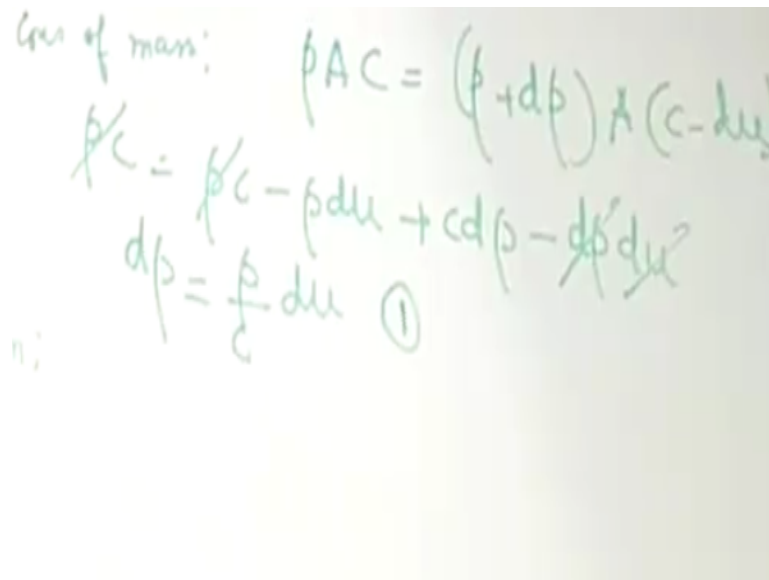 Cons of mass: ρAC = (ρ+dρ) A (c-du)
ρc = ρc - ρdu + cdρ - dρdu
dρ = ρ/c du ①
n;